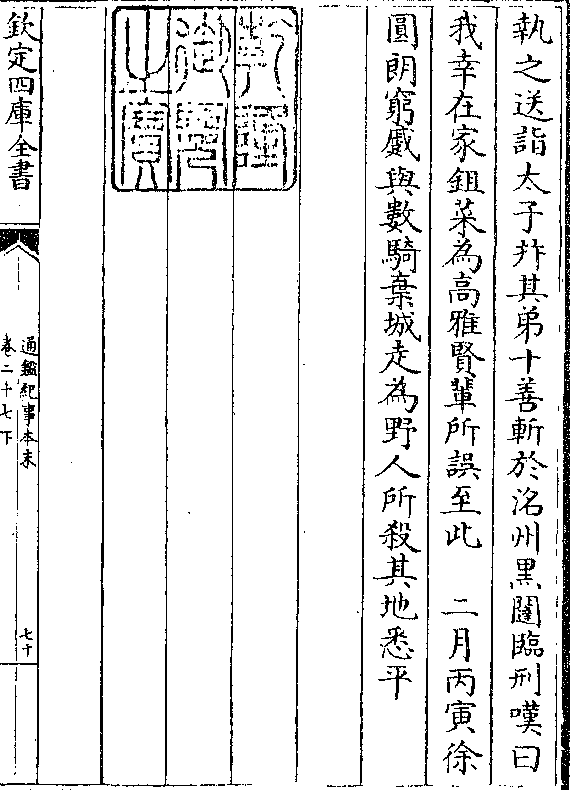 執之送詣太子并其弟十善斬於洺州黒闥臨刑嘆曰
我幸在家鉏菜為高雅賢輩所誤至此　二月丙寅徐
圓朗窮蹙與數騎棄城走為野人所殺其地悉平
乾隆御覽之寶
欽定四庫全書
通鑑紀事本末
卷二十七下
七十